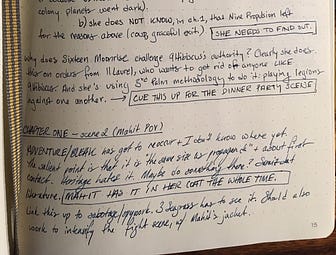 colony planets went dark).
b) she does NOT KNOW, in ch. 1, that Nine Propulsion left
for the reasons above (coup, graceful exit) SHE NEEDS TO FIND OUT.
Why does Sixteen Moonrise challenge 9Hibiscus's authority? Clearly she does
this on orders from 11Laurel, who wants to get rid of anyone LIKE
9Hibiscus. And she's using 3rd Palm methodology to do it: playing legions
against one another. → CUE THIS UP FOR THE DINNER PARTY SCENE
CHAPTER ONE - scene 2 (Mahit POV)
has got to reoccur + I don't know where yet.
The salient point is that it is the same size as propaganda + about first
contact. Heritage hates it. Maybe do something there?
literature. MAHIT HAS IT IN HER COAT THE WHOLE TIME.
Link this up to sabotage/ . 3 Seagrass has to see it. Should also
work to intensify the fight scene, w/ Mahit's jacket.
15